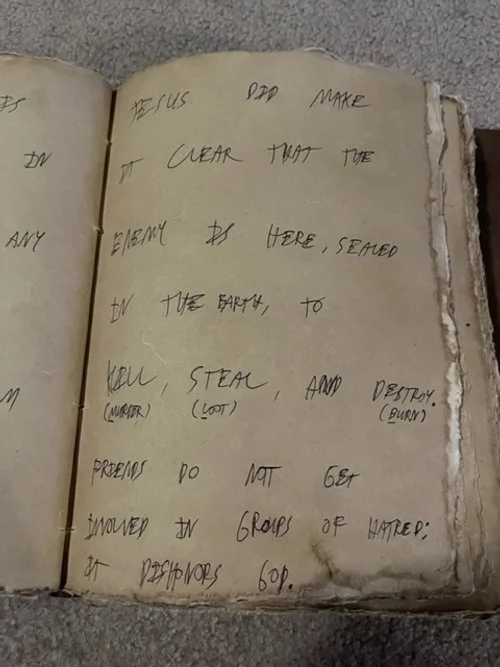 IS
IN
ANY
M
JESUS DID MAKE
IT CLEAR THAT THE
ENEMY IS HERE, SEALED
IN THE EARTH, TO
KILL, STEAL, AND DESTROY.
(MURDER) (LOOT) (BURN)
FRIENDS DO NOT GET
INVOLVED IN GROUPS OF HATRED;
IT DISHONORS GOD.